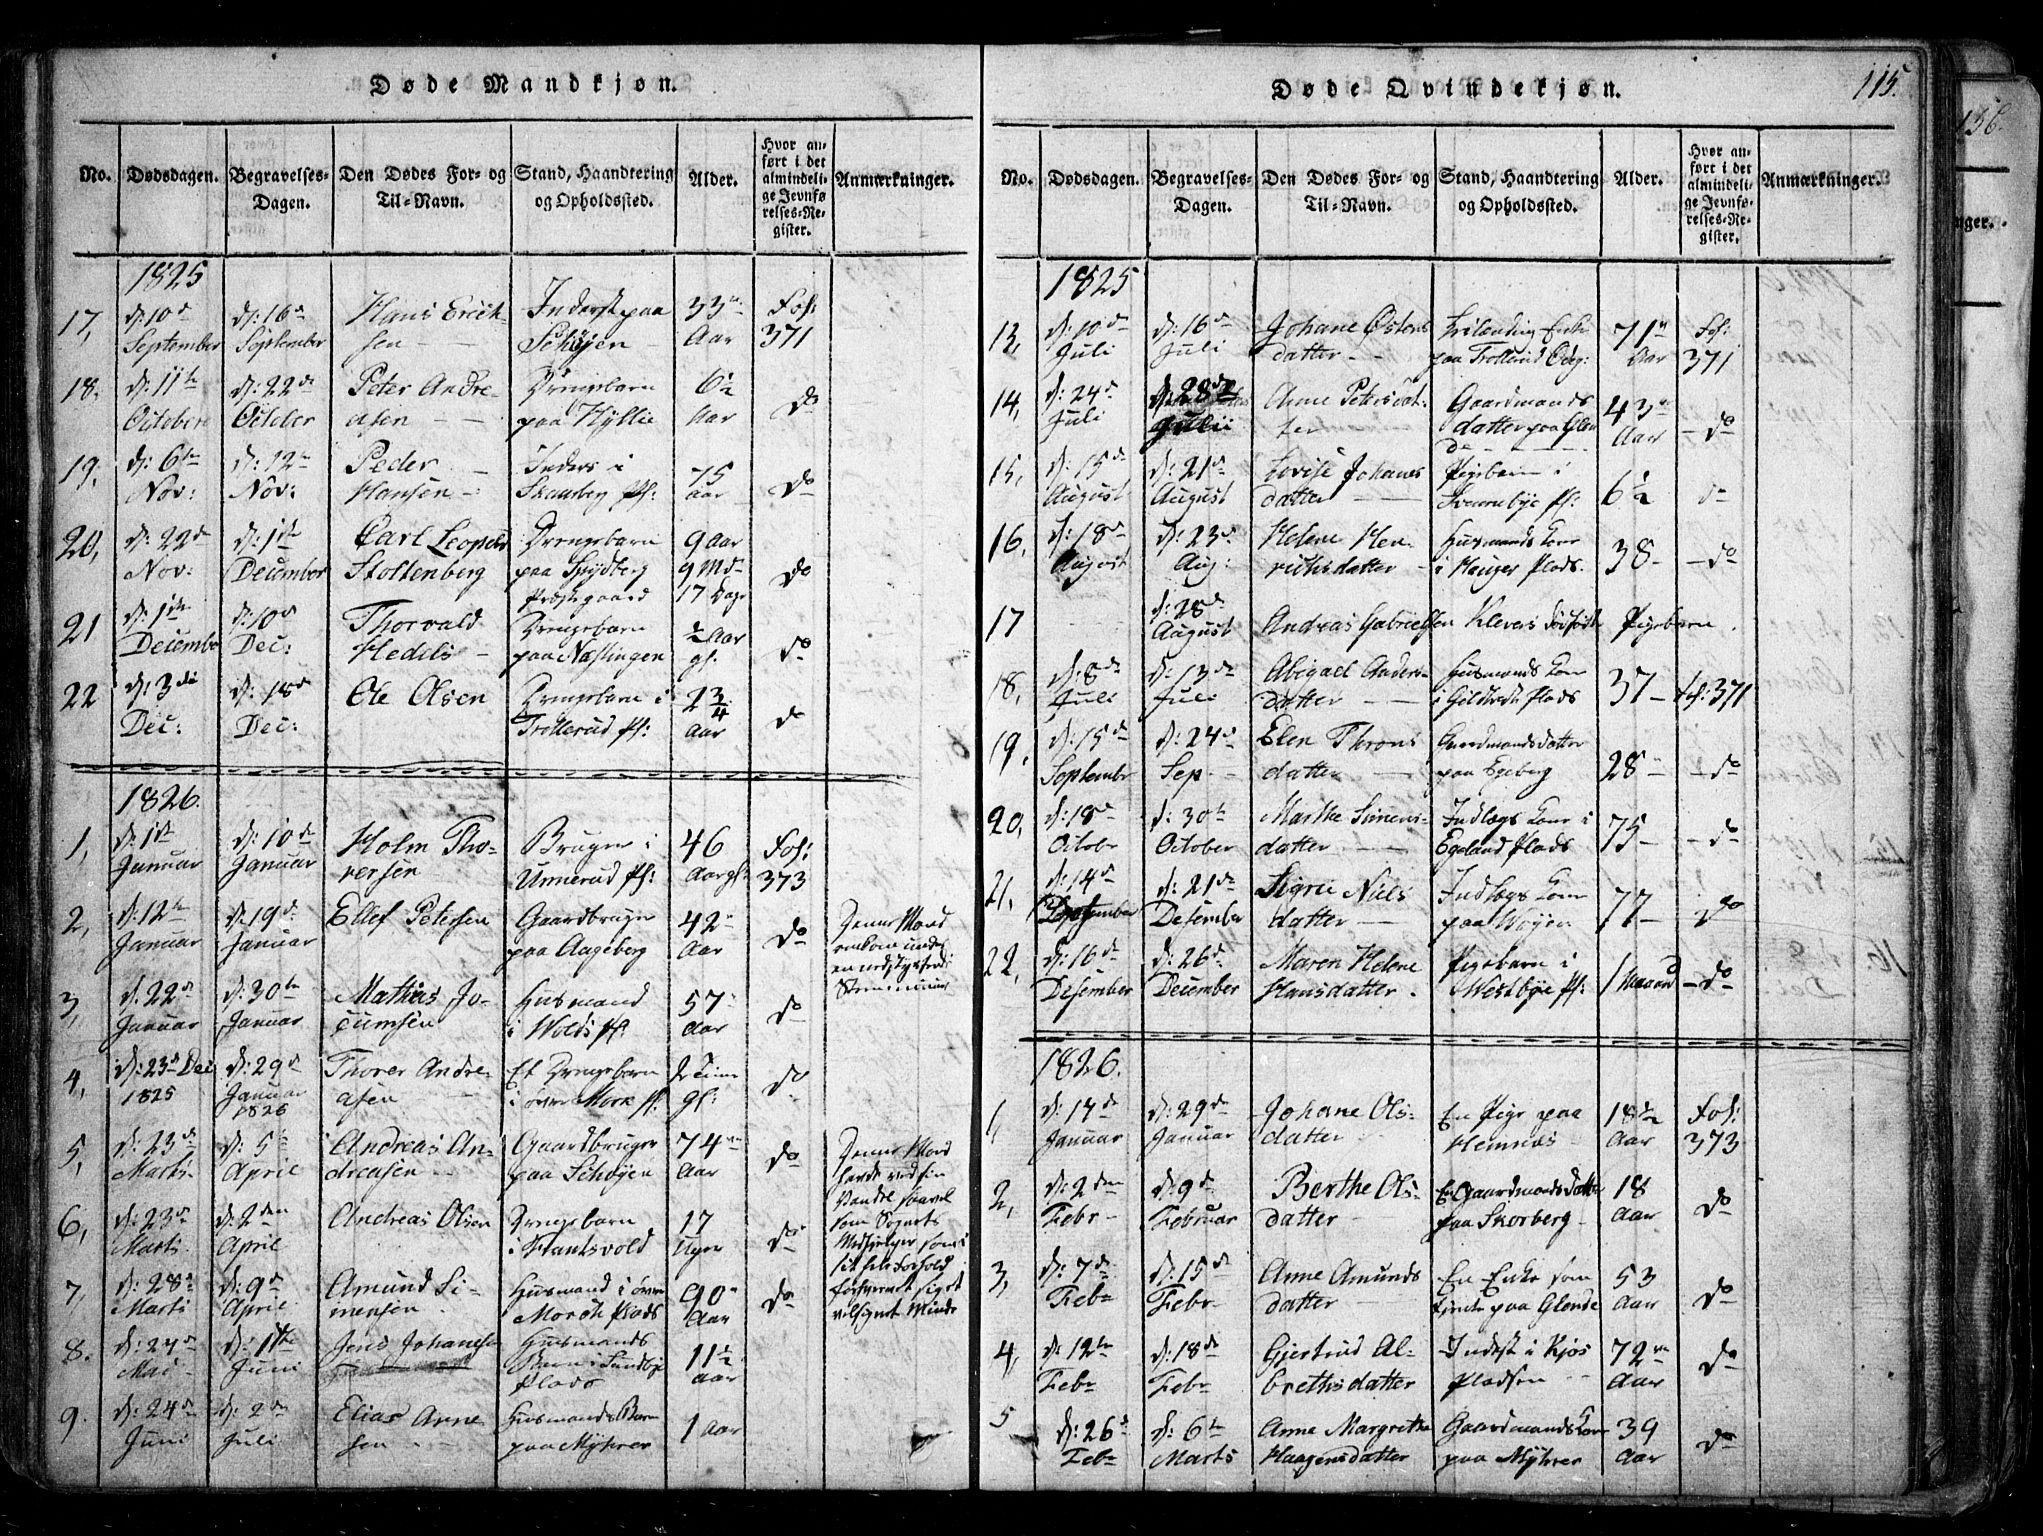 Døde Mandkjøn.
No. Dødsdagen. Begravelses-Dagen. Den Dødes For- og Til-Navn. Stand, Haandtering og Opholdssted. Alder. Hvor anført i det almindelige Jevnførelses-Register. Anmærkninger.
1825
17, d: 10d September d: 16d September Hans Erichsen Inderst paa Schøjen 33 Aar Fol: 371
18. d: 11te October d: 22de October Peter Andreasen Drengebarn paa Hyllie 6½ Aar do
19. d: 6te Nov: d: 12te Nov: Peder Hansen Inders i Skansby Pl: 75 aar do
20, d: 22d Nov: d: 1ste December Carl Leopold Stoltenberg Drengebarn paa Spydberg Præstegaard 9 aar 9 Md 17 Dage do
21 d: 1ste December d: 10d Dec: Thorvald Hedels Drengebarn paa Næslingen ½ Aar gl. do
22 d: 3di Dec: d: 18d Dec: Ole Olsen Drengebarn i Trollerud Pl: 2¾ aar do
1826.
1, d: 1ste Januar d: 10de Januar Holm Thoversen Bruger i Unnerud Pl: 46 Aar gl: Fol: 373
2, d: 12te Januar d: 19d Januar Ellef Petersen Gaardbruger paa Aageberg 42 Aar do Denne Mand omkom under en nedstyrtende
3, d. 22d Januar d: 30te Januar Mathias Jocumsen Husmand i Wolds pl: 57 Aar do
4, d: 23d Dec 1825 d: 29d Januar 1826 Thorer Andreasen Et Drengebarn i øvre Mork pl: 2 Timer gl: do
5, d: 23d Marts d: 5te April Andreas Andreasen Gaardbruger paa Schøyen 74 Aar do Denne Mand havde ved sin Vandel saavel som Sogнets
6, d: 23d Marts d: 2den April Andreas Olsen Drengebarn i Frantsvold 17 Uger do
7, d: 28d Marts d: 9d April Amund Simensen Husmand i øvre Morck Plads 90 Aar do velsignet Minde
8. d: 27d Mai d: 11te Juni Jens Johansen Husmands Barn i Sundbye Plads 11½ aar
9. d: 24d Juni d: 2den Juli Elias Arnesen Husmands Barn paa Myhrer 1 Aar
Døde Qvindekjøn.
115.
136.
No. Dødsdagen. Begravelses-Dagen. Den Dødes For- og Til-Navn. Stand, Haandtering og Opholdssted. Alder. Hvor anført i det almindelige Jevnførelses-Register. Anmærkninger.
nger.
1825
13, d: 10d Juli d: 16d Juli Johane Østensdatter Enke paa Trollerud 71 Aar Fol: 371
14, d: 24d Juli d: 28de Julii Anne Petersdatter Gaardmands datter paa Glende 43 Aar do
15, d: 15d August d: 21d August Lovise Johansdatter Pigebarn i Svennebye Pl: 6½ do
16, d: 18d August d: 23d Aug: Helene Henrichsdatter Husmands Kone i Hauger Plads. 38 do
17 d: 28d August Andreas Gabrielsen Klevers dødfødt Pigebarn.
18, d: 8de Juli d: 13de Juli Abigael Andersdatter Husmands Kone i Gildtvedt Plads 37 fol: 371
19. d: 15d September d: 24d Sep. Elen Throns datter Gaardmandsdatter paa Egeberg 28 do
20, d: 18d Octobr d: 30te October Marthe Simensdatter Indlægs Kone i Egeland Plads 75 do
21, d: 14d d: 21de Desember Sigrie Niels datter Indlægs Kone paa Woyen 77 do
22, d: 16d Desember d: 26d December Maren Helene Hansdatter Pigebarn i Westbye Pl: 1 Maaned do
1826.
1 d: 17d Januar d: 29d Januar Johane Olsdatter En Pige paa Hemnæs 18½ Aar Fol: 373
2, d: 2den Febr d: 9d Februar Berthe Olsdatter En Gaardmands Datter paa Skorberg 18 aar do
3, d: 7de Febr d: 15de Febr Anne Amunds datter En Enke som Inders paa Glende 53 Aar do
4, d: 12te Febr d: 18de Febr Giertrud Albrethsdatter Inderst i Kjos Pladsen 72 Aar do
5 d: 26d Febr d: 6te Marts Anne Margrethe Haagensdatter Gaardmands Kone paa Myhrer 39 Aar do